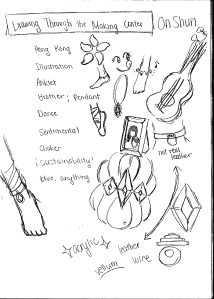 Drawing Through the Making Center
On Shun
Hong Kong
Illustration
Anklet
Brother; Pendant
Dance
Sentimental
Choker
¡sustainability!
blue, anything
not real
leather
acrylic
leather
vellum
wire